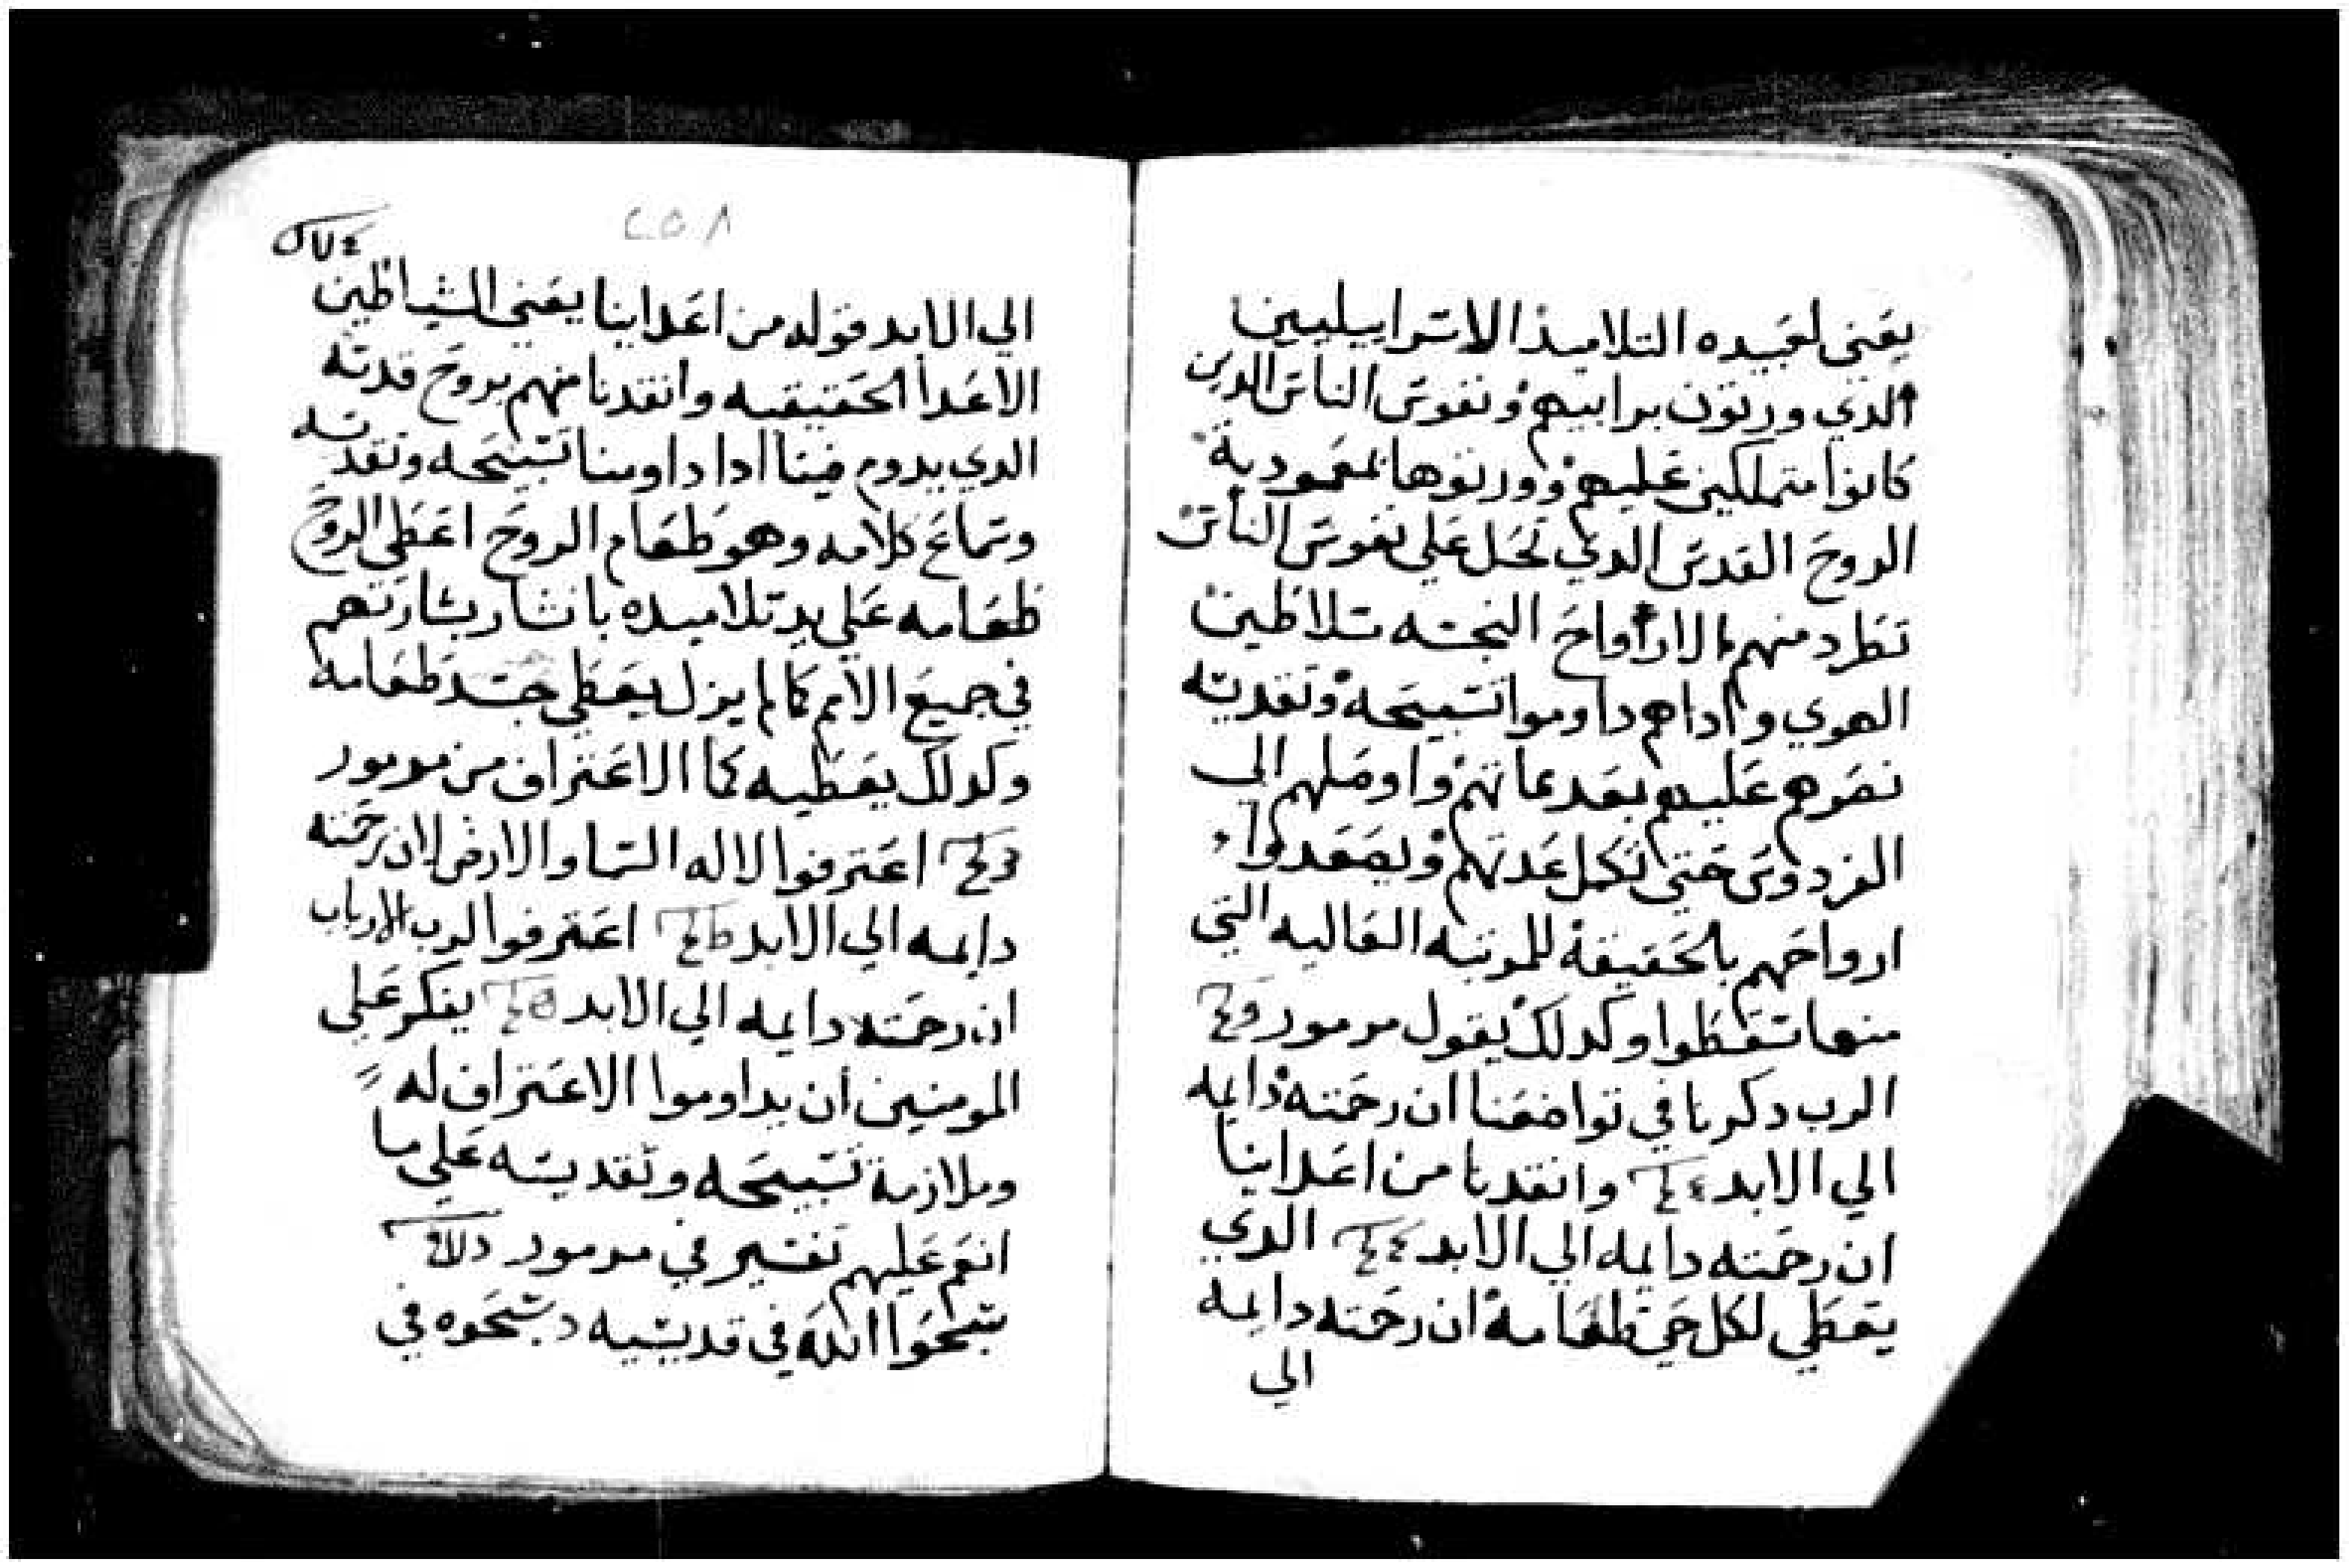 يعني لعبيده التلاميذ الاسراييليين
الذي ورتون برابيهم ونفوس الناس الدين
كانوا متملكين عليهم وورتوها بمعمودية
الروح القدس الدي تحل علي نفوس الناس
تطرد منهم الارواح النجسه سلاطين
الهوي واداهم داوموا تسبيحه وتقديسه
نصرهم عليهم وبعد مماتهم واوصلهم الي
الفردوس حتي تكمل عدتهم ويصعدوا
ارواحهم بالحقيقة للمرتبه العاليه التي
منها سقطوا وكدلك يقول مرمور
الرب دكرنا في تواضعنا ان رحمته دايمه
الي الابد وانقدنا من اعداينا
ان رحمته دايمه الي الابد الدي
يعطي لكل حي طعامه ان رحمته دايمه
الي
٢٥٨
الي الابد قوله من اعداينا يعني الشياطين
الاعدا الحقيقيه وانقدنا منهم بروح قدسه
الدي يدوم فينا ادا داومنا تسبيحه وتقديسه
وسماع كلامه وهو طعام الروح اعطي الروح
طعامه علي يد تلاميده بانتشار بشارتهم
في جميع الامم كما لم يزل يعطي جسد طعامه
وكدلك يعطيه كما الاعتراف من مرمور
اعترفوا لاله السما والارض لان رحمته
دايمه الي الابد اعترفوا لرب الارباب
ان رحمته دايمه الي الابد يفكر علي
المومنين ان يداوموا الاعتراف له
وملازمة تسبيحه وتقديسه علي ما
انعم عليهم تفسير في مرمور
سبحوا الله في قديسيه سبحوه في